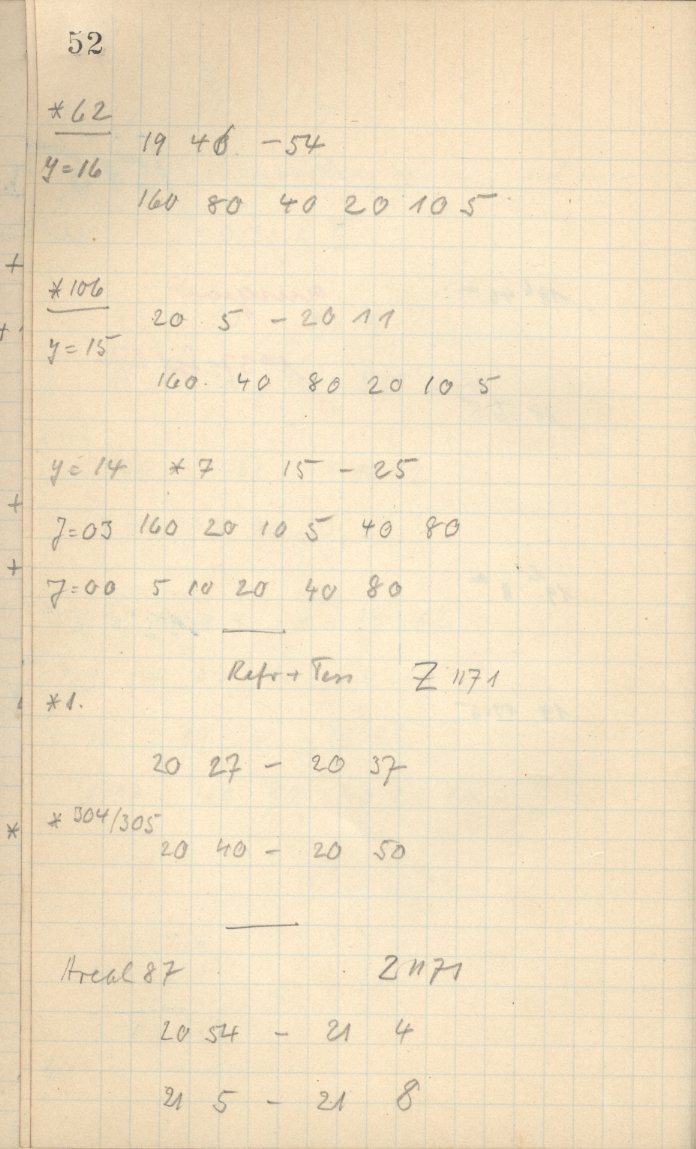 52
*62
19 46 - 54
y=16
160 80 40 20 10 5
*106
20 5 - 20 11
y=15
160 40 80 20 10 5
y=14 *7 15 - 25
y=03 160 20 10 5 40 80
y=00 5 10 20 40 80
Refr + Tess Z 1171
*1.
20 27 - 20 37
*304/305
20 40 - 20 50
Areal 87 Z 1171
20 54 - 21 4
21 5 - 21 8